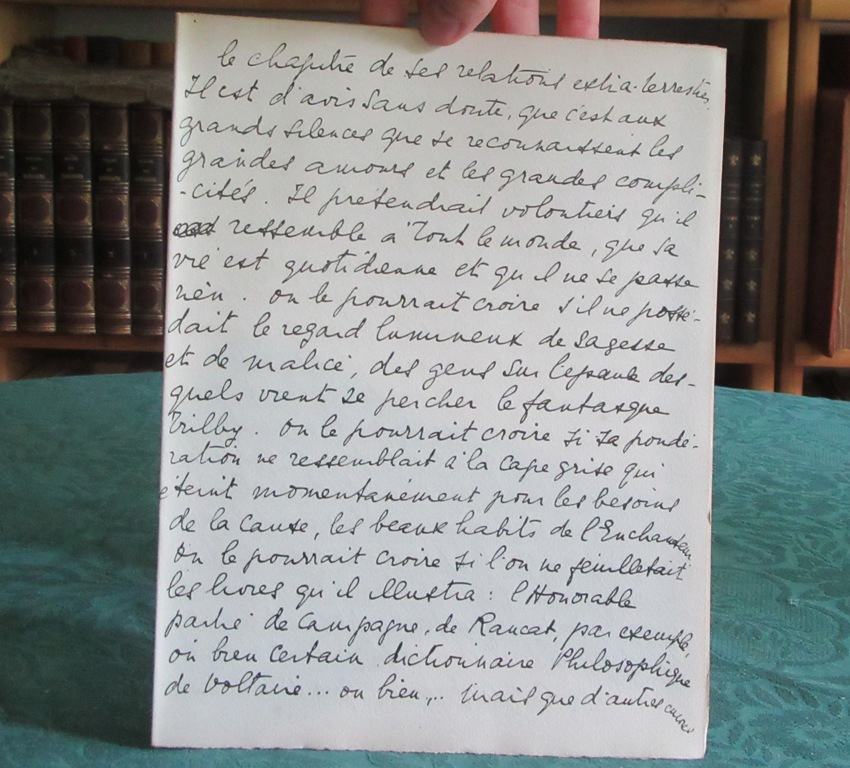 le chapitre de ses relations extra-terrestres.
Il est d'avis sans doute, que c'est aux
grands silences que se reconnaissent les
grandes amours et les grandes compli-
-cités. Il prétendrait volontiers qu'il
ressemble à Tout le monde, que sa
vie est quotidienne et qu'il ne se passe
rien. On le pourrait croire s'il ne possé-
dait le regard lumineux de sagesse
et de malice, des gens sur l'épaule des-
quels vient se percher le fantasque
Trilby. On le pourrait croire si sa pondé-
ration ne ressemblait à la cape grise qui
éteint momentanément pour les besoins
de la cause, les beaux habits de l'Enchanteur
On le pourrait croire si l'on ne feuilletait
les livres qu'il illustra : l'Honorable
partie de Campagne, de Raucat, par exemple,
ou bien Certain dictionnaire Philosophique
de Voltaire... ou bien... mais que d'autres encore